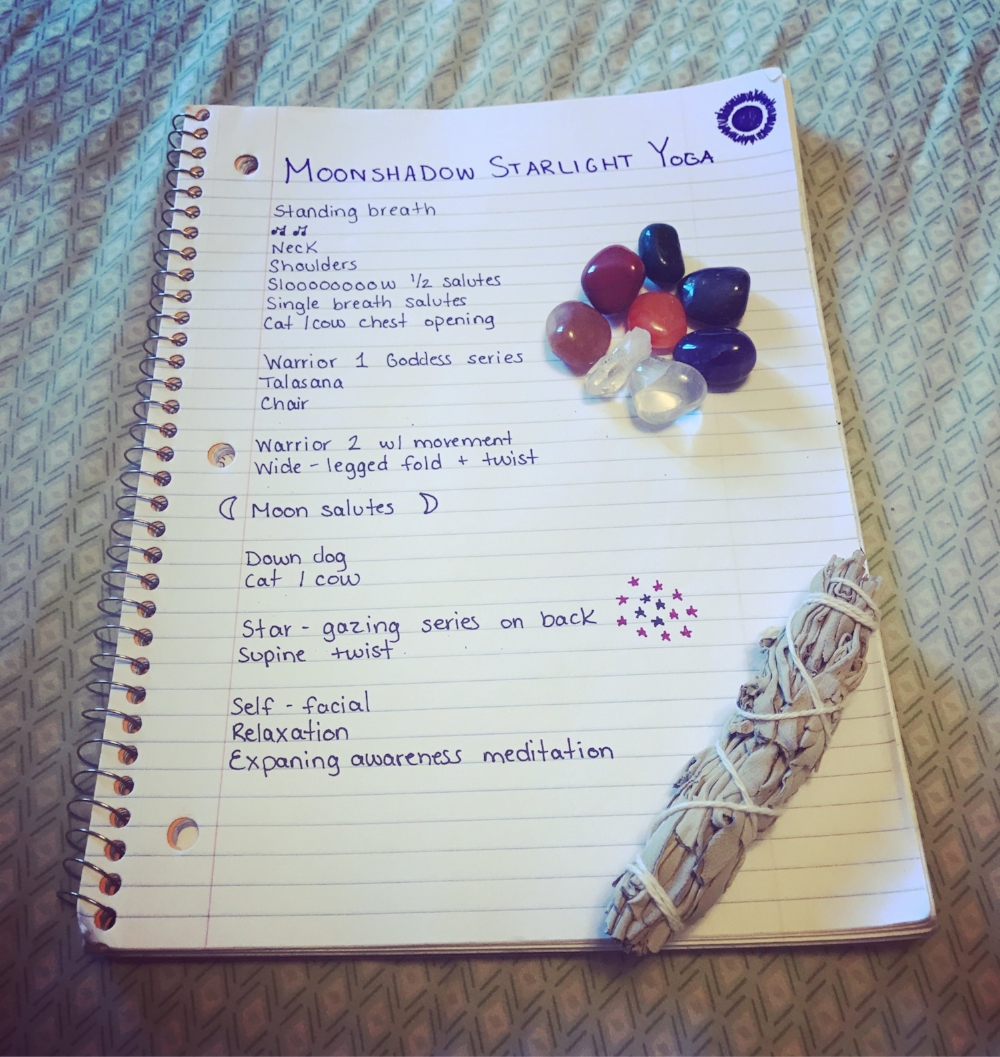 MOONSHADOW STARLIGHT YOGA
Standing breath
♫ ♫
Neck
Shoulders
Slooooooow 1/2 salutes
Single breath salutes
Cat / cow chest opening
Warrior 1 Goddess series
Talasana
Chair
Warrior 2 w/ movement
Wide - legged fold + twist
Moon salutes
Down dog
Cat / cow
Star - gazing series on back
Supine twist
Self - facial
Relaxation
Expaning awareness meditation